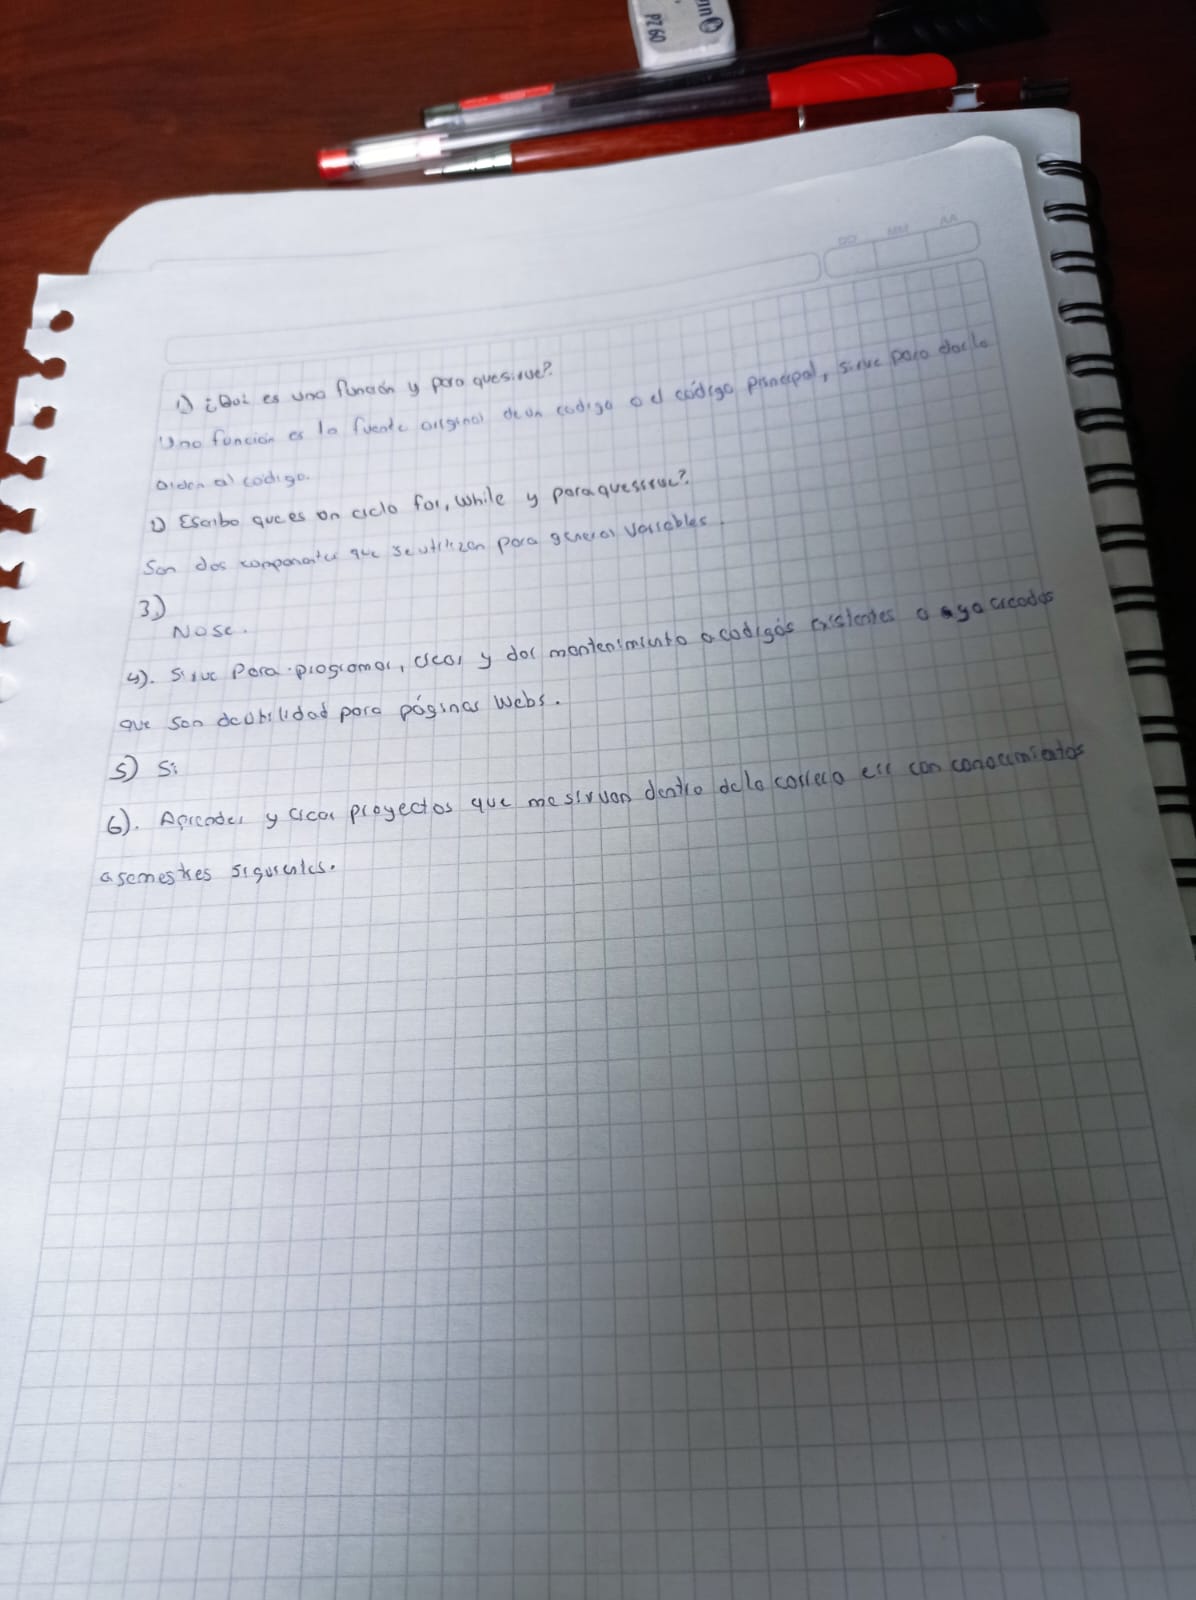 PZ 60
DD MM AA
1) ¿Qué es una función y para que sirve?.
Una función es la fuente original de un codigo o el código principal, sirve para darle
orden al codigo.
2) Escriba que es un ciclo for, while y para que sirve?.
Son dos componentes que se utilizan para generar variables.
3)
No se.
4). Sirve para programar, crear y dar mantenimiento a codigos existentes o ya creados
que son de utilidad para páginas Webs.
5) Si
6). Aprender y crear proyectos que me sirvan dentro de la carrera con conocimientos
a semestres siguientes.